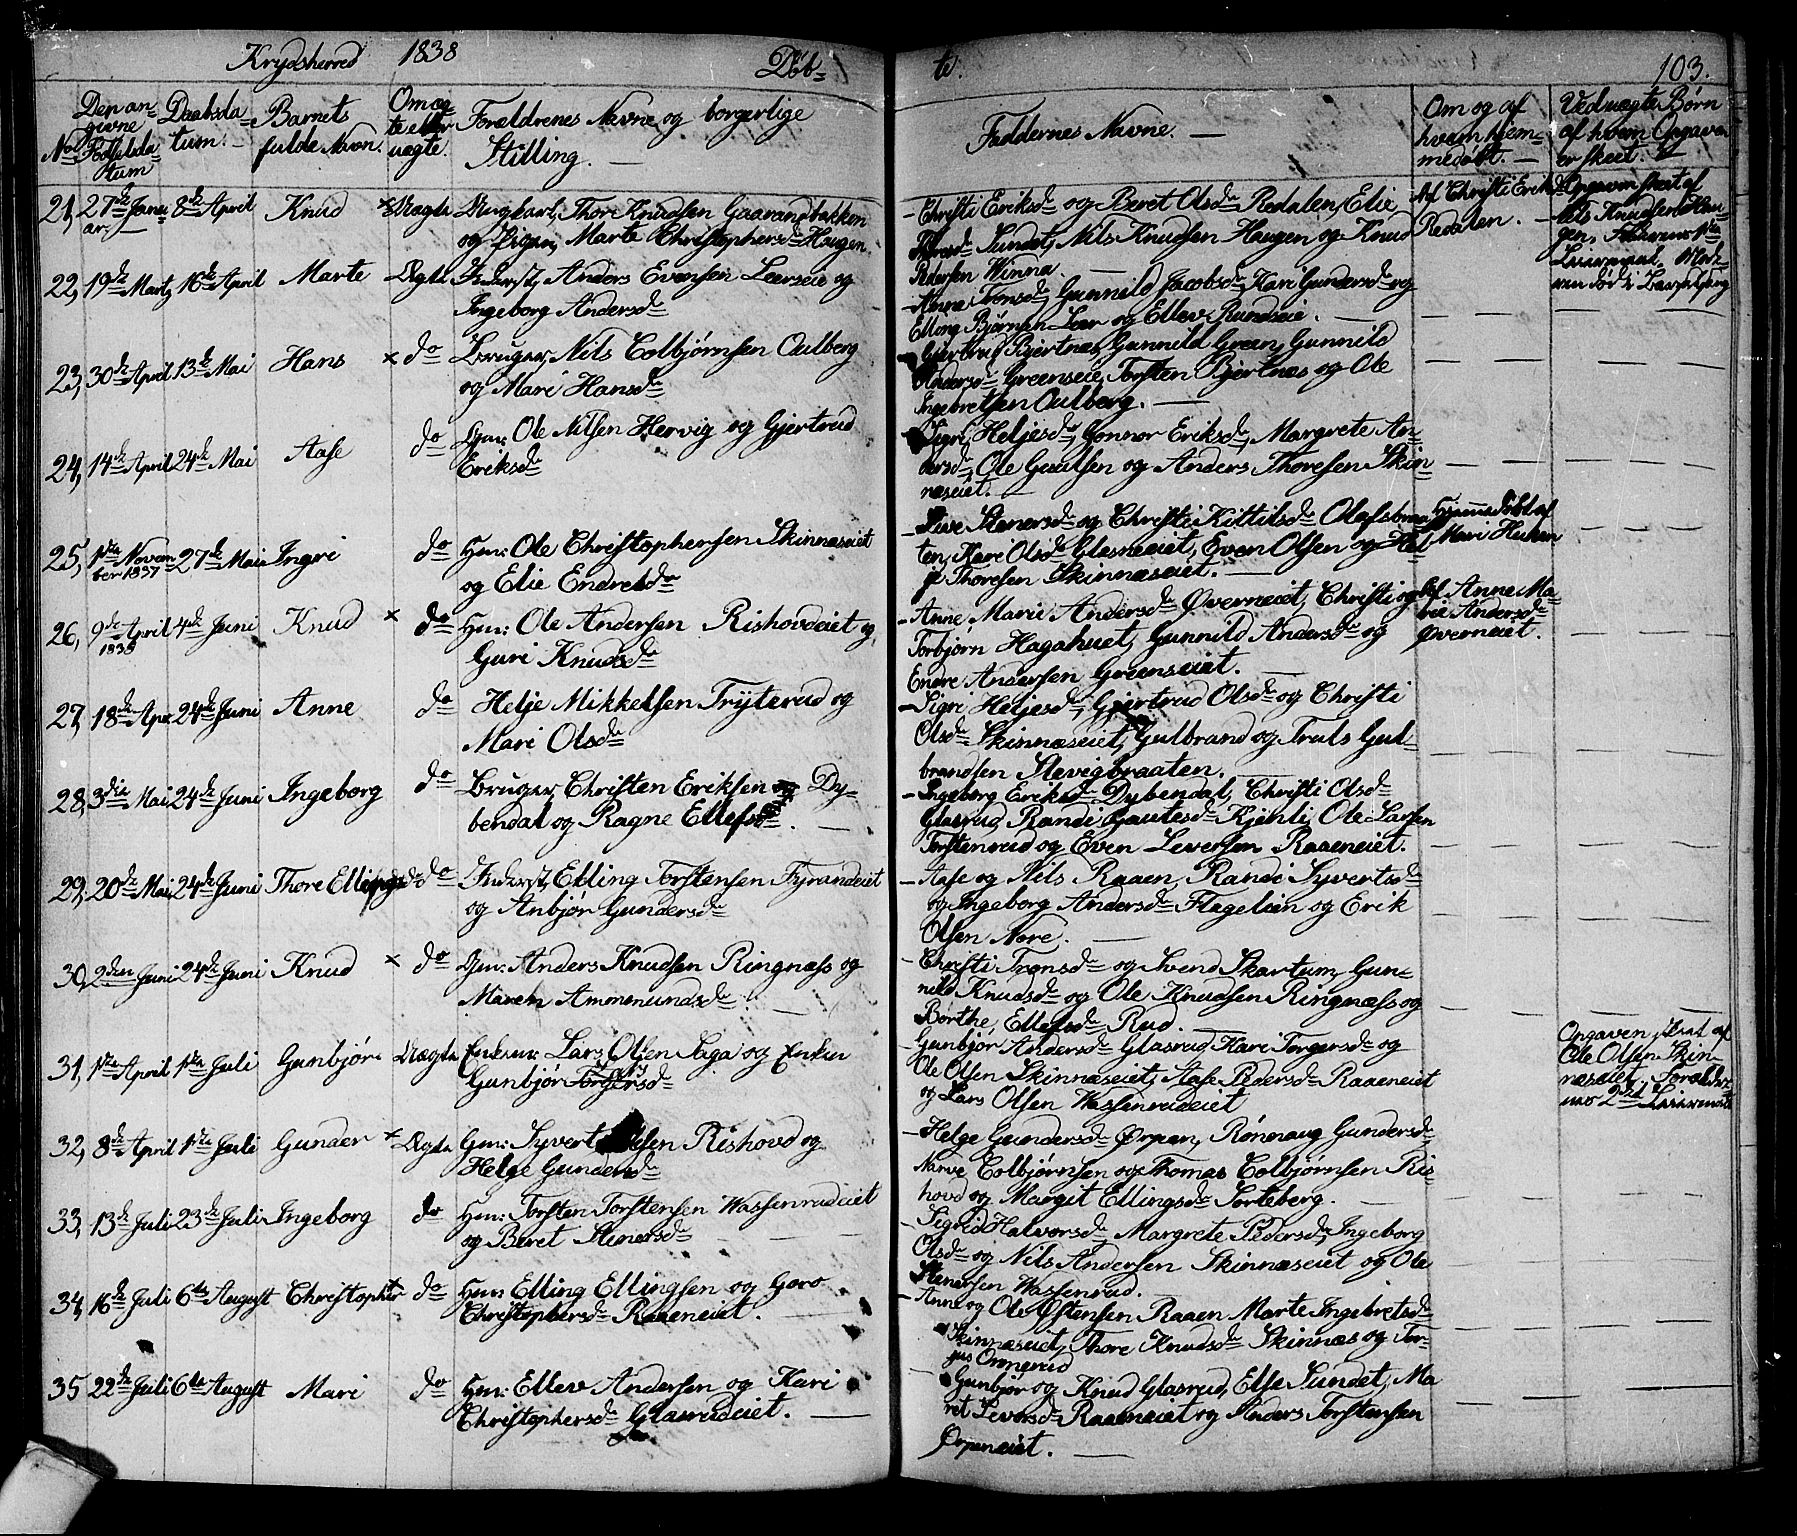 Krydsherred 1838 Döb-
te. 103.
No
Den an-
givne
Födselsda-
tum
Daabsda-
tum.
Barnets
fulde Navn.
Om æg-
te eller
uægte.
Forældrenes Navne og borgerlige
Stilling.
Faddernes Navne.
Om og af
hvem hjem-
medöbt.
Ved uægte Börn
af hvem Opgaven
er skeet.
21, 27de Janu- 8de April Knud × Uægte Ungkarl, Thore Knudsen Gaarandbakken
ar. og Pigen, Marte Christophersdr Haugen.
Christi Eriksdr og Beret Olsdr Redalen, Elie
Thoresdr Sundet, Nils Knudsen Haugen og Knud
Pedersen Winna.
Af Christi Eriksdr
Redalen.
Opgaven skeet af
Nils Knudsen Hau-
gen, Faderens 1ste
Leiermaal, Mod-
eren född i
22, 19de Martz 16de April Marte Ægte Inderst, Anders Evensen Leerseie og
Ingeborg Andersdr
Anne Tronsdr, Gunnild Jacobsdr, Kari Gundersdr og
Elling Björnsen Leer og Ellev Rundseie.
23, 30de April 13de Mai Hans × do Bruger, Nils Colbjörnsen Oulberg
og Mari Hansdr
Gjertrud Bjertnæs, Gunnild Green, Gunnild
Andersdr Greenseie, Torsten Bjertnæs og Ole
Ingebretsen Oulberg.
24, 14de April 24de Mai Aase do Gm: Ole Nilsen Hervig og Gjertrud
Eriksdr
Sigri Heljesdr, Gonnor Eriksdr, Margrete An-
dersdr, Ole Gaulsen og Anders Thoresen Skin-
næseiet.
25, 1ste Novem- 27de Mai Ingri do Hm: Ole Christophersen Skinnæseiet
ber 1837 og Elie Endresdr
Live Stenersdr og Christi Kittilsdr Olafsbraa-
ten, Kari Olsdr Glæsneeiet, Even Olsen og Hel-
je Thoresen Skinnæseiet.
Hjemmedöbt af
Mari
26, 9de April 4de Juni Knud × do Hm: Ole Andersen Rishovdeiet og
1838 Guri Knudsdr
Anne Marie Andersdr Överneeiet, Christi og
Torbjörn Hagahuet, Gunnild Andersdr og
Endre Andersen Greenseiet.
Af Anne Ma-
rie Andersdr
Överneiet.
27, 18de Apr. 24de Juni Anne do Helje Mikkelsen Tryterud og
Mari Olsdr
Sigri Heljesdr, Gjertrud Olsdr og Christi
Olsdr Skinnæseiet, Gulbrand og Truls Gul-
brandsen Slevigbraaten.
28, 3die Mai 24de Juni Ingeborg do Bruger, Christen Eriksen Dy-
bendal og Ragne Ellefsdr.
Ingeborg Eriksdr Dybendal, Christi Olsdr
Glasrud, Randi Gautesdr Kjenli, Ole Larsen
Torstenrud og Even Leversen Raaeneiet.
29, 20de Mai 24de Juni Thore Ellingsen do Inderst, Elling Torstensen Fyrandeiet
og Anbjör Gundersdr
Aase og Nils Raaen, Randi Syvertsdr
og Ingeborg Andersdr Flagelien og Erik
Olsen Nore.
30, 2den Juni 24de Juni Knud × do Gm: Anders Knudsen Ringnæss og
Maren Ammundsdr
Christi Tronsdr og Svend Skartum, Gun-
nild Knudsdr og Ole Knudsen Ringnæss og
Börthe, Ellefsdr Rud.
31, 1ste April 1ste Juli Gunbjör Uægte Enkem: Lars Olsen Saga og Enken
Gunbjör Torgersdr
Gunbjör Andersdr Glasrud, Kari Torgersdr og
Ole Olsen Skinnæseiet, Aase Pedersdr Raaeneiet
og Lars Olsen Wassenrudeiet
Opgaven skeet af
Ole Olsen Skin-
næseiet. Forældre-
nes 2det Leiermaal
32, 8de April 1ste Juli Gunder × Ægte Gm: Syvert Rishovd og
Helge Gundersdr
Helge Gundersdr Örpen, Rönnaug Gundersdr
Narve Colbjörnsen og Thomas Colbjörnsen Ris-
hovd og Margit Ellingsdr Sorteberg.
33, 13de Juli 23de Juli Ingeborg do Hm: Torsten Torstensen Wassenrudeiet
og Beret Stenersdr
Sigrid Halvorsdr, Margrete Pedersdr, Ingeborg
Olsdr og Nils Andersen Skinnæseiet og Ole
Stenersen Wassenrud.
34, 16de Juli 6te August Christopher × do Hm: Elling Ellingsen og Goro
Christophersdr Raaeneiet.
Anne og Ole Östensen Raaen Marte Ingebretsdr
Skinnæseiet, Thore Knudsdr Skinnæs og Tor-
jus Ormerud
35 22de Juli 6te August Mari do Hm: Ellev Andersen og Kari
Christophersdr Glasrudeiet.
Gunbjör og Knud Glasrud, Else Sundet, Ma-
ret Leversdr Raaeneiet og Anders Torstensen
Örpeneiet.